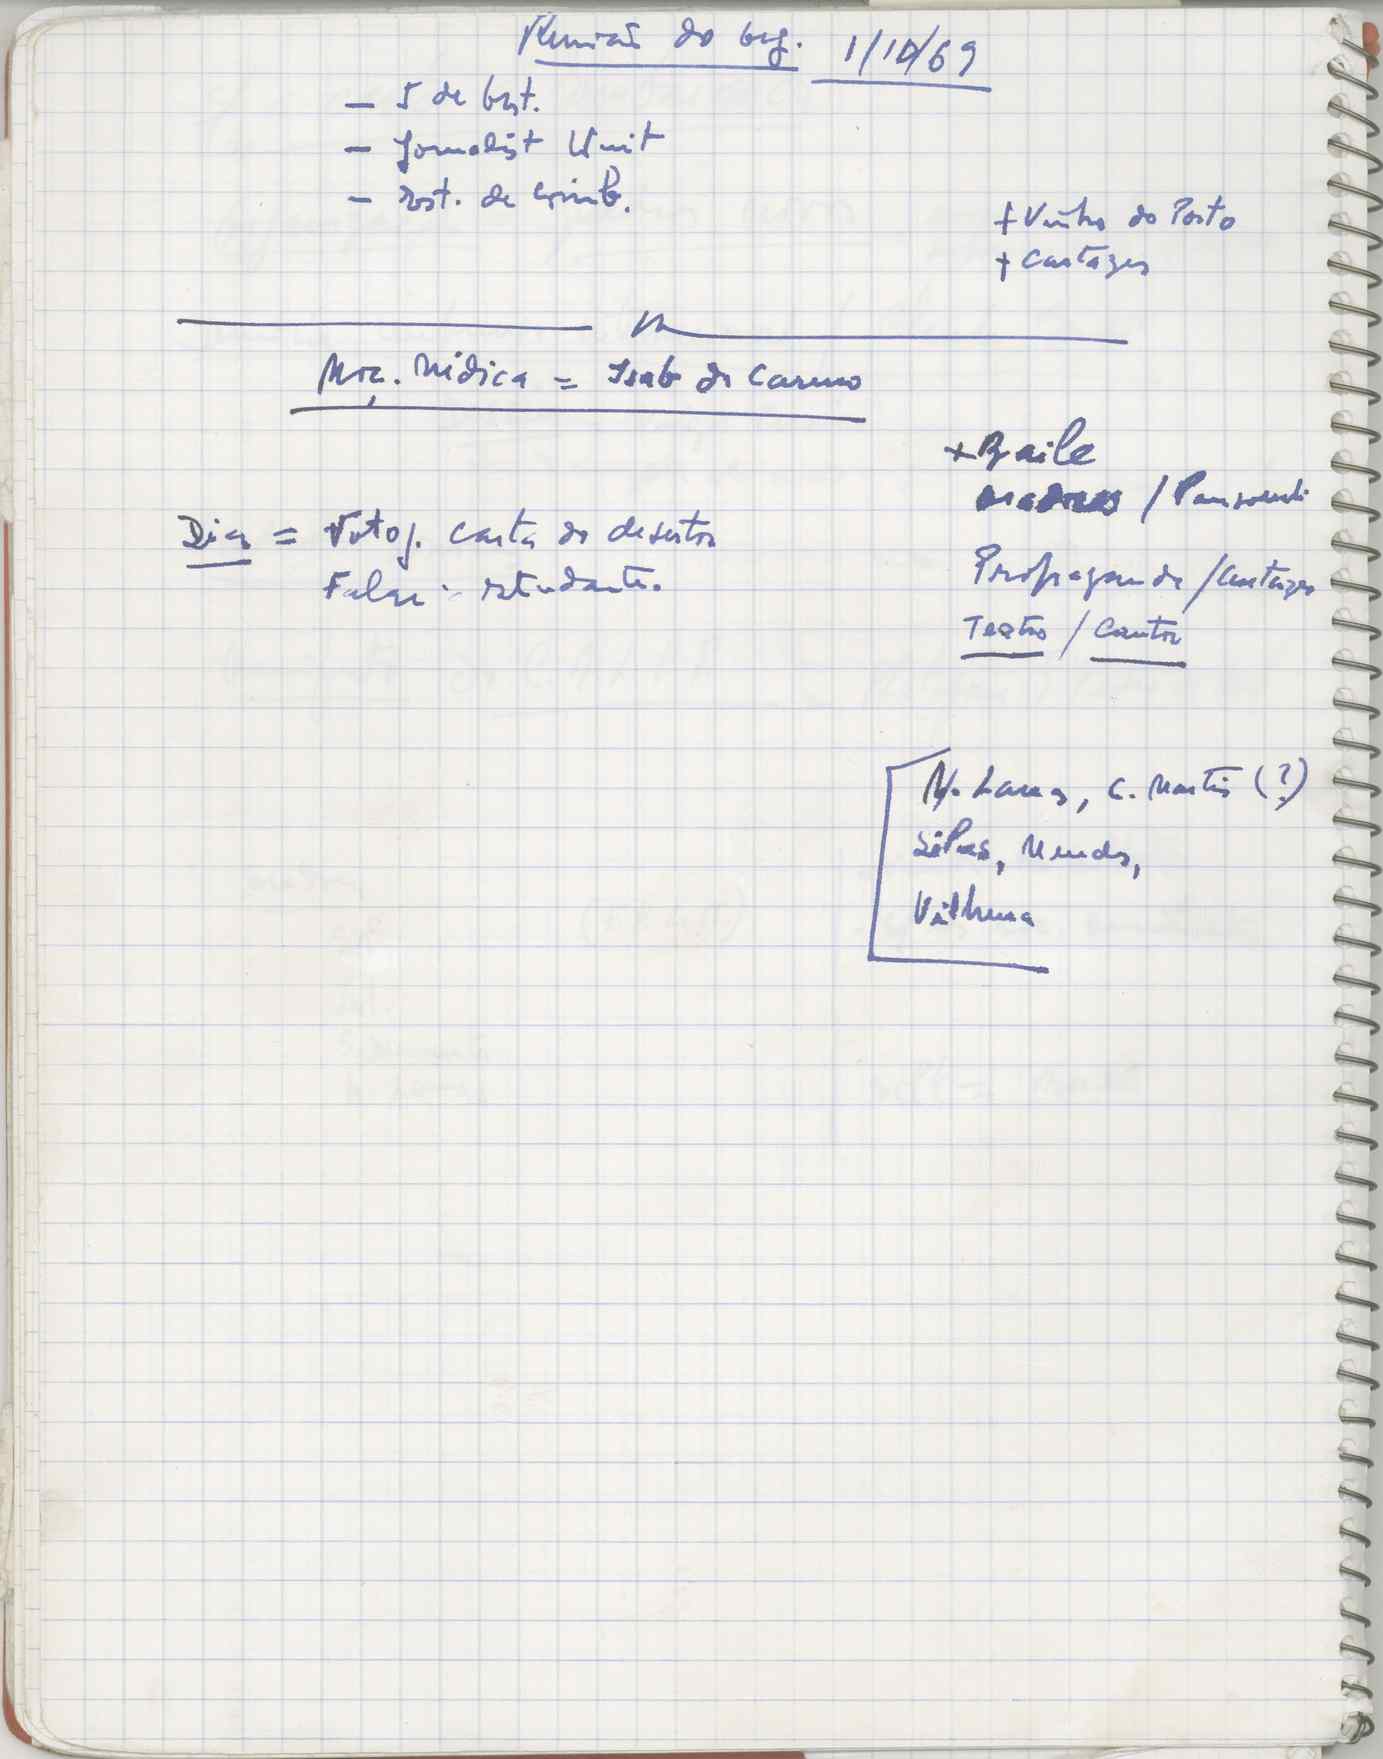 Reunião do org. 1/10/69
– 5 de Out.
– Jornalist Unit
– Est. de Coimb.
+ Vinho do Porto
+ Cartazes
Méd. = Isab do Carmo
+ Baile
/
Propaganda / Cartazes
Teatro / Cantor
Dias = Fotoj. carta do desertor
Falar: estudante.
M. Lança, C. Martins (?)
Silas, Mendes,
Vilhena